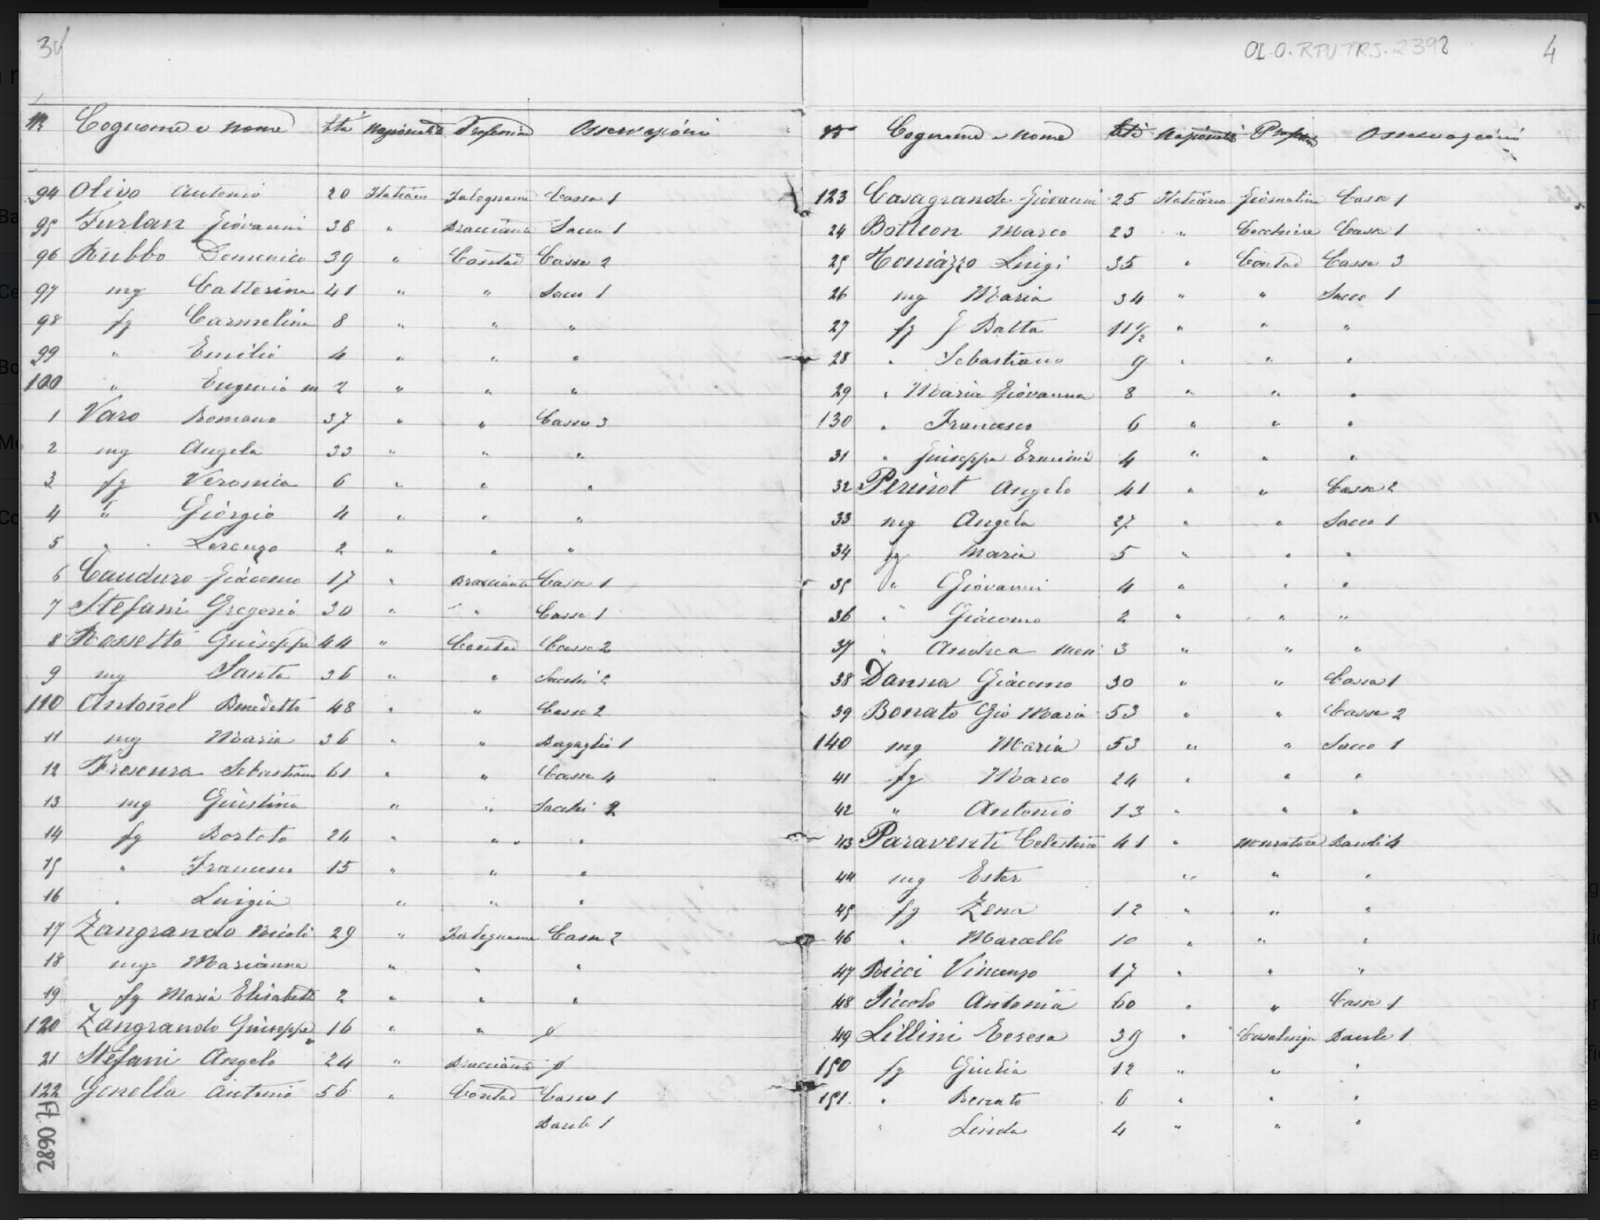 34
Nº Cognome e nome Età Nazionalità Professione Osservazioni
94 Olivo Antonio 20 Italiano Falegname Cassa 1
95 Furlan Giovanni 38 " Bracciante Sacco 1
96 Rubbo Domenico 39 " Contad Casse 2
97 mg Catterina 41 " " Sacco 1
98 fg Carmelina 8 " " "
99 " Emilio 4 " " "
100 " Eugenio m 2 " " "
1 Varo Romano 37 " " Casse 3
2 mg Angela 33 " " "
3 fg Veronica 6 " " "
4 " Giorgio 4 " " "
5 " Lorenzo 2 " " "
6 Cauduro Giacomo 17 " Bracciante Cassa 1
7 Stefani Gregorio 30 " " Cassa 1
8 Rossetto Guiseppe 44 " Contad Casse 2
9 mg Santa 36 " " Sacchi 2
110 Antoniel Benedetto 48 " " Casse 2
11 mg Maria 36 " " Bagaglio 1
12 Fresenza Sebastiano 61 " " Casse 4
13 mg Giustina " " Sacchi 2
14 fg Bortolo 24 " " "
15 " Francesco 15 " " "
16 " Luigia " " "
17 Zangrando Nicolò 29 " Falegname Casse 2
18 mg Marianna " " "
19 fg Maria Elisabetta 2 " " "
120 Zangrando Guiseppe 16 " "
21 Stefani Angelo 24 " Bracciante
122 Gonella Antonio 56 " Contad Cassa 1
Baule 1
FL 0682
OI.O.RFV TRJ.2392 4
Nº Cognome e nome Età Nazionalità Profess Osservazioni
123 Casagrande Giovanni 25 Italiano Giornalino Cassa 1
24 Bottcon Marco 23 " Cocchiere Cassa 1
25 Toniazzo Luigi 35 " Contad Casse 3
26 mg Maria 34 " " Sacco 1
27 fg G Batta 11 1/2 " " "
28 " Sebastiano 9 " " "
29 " Maria Giovanna 8 " " "
130 " Francesco 6 " " "
31 " Guiseppe Erminio 4 " " "
32 Perinot Angelo 41 " " Casse 2
33 mg Angela 27 " " Sacco 1
34 fg Maria 5 " " "
35 " Giovanni 4 " " "
36 " Giacomo 2 " " "
37 " Andrea mesi 3 " " "
38 Danna Giacomo 30 " " Cassa 1
39 Bonato Gio Maria 53 " " Casse 2
140 mg Maria 53 " " Sacco 1
41 fg Marco 24 " " "
42 " Antonio 13 " " "
43 Paraventi Celestino 41 " Muratore Bauli 4
44 mg Ester " " "
45 fg Zena 12 " " "
46 " Marcello 10 " " "
47 Ricci Vincenzo 17 " " "
48 Piccolo Antonia 60 " " Cassa 1
49 Lillini Teresa 39 " Casalinga Baule 1
150 fg Giulia 12 " " "
151 " Renato 6 " " "
" Linda 4 " " "